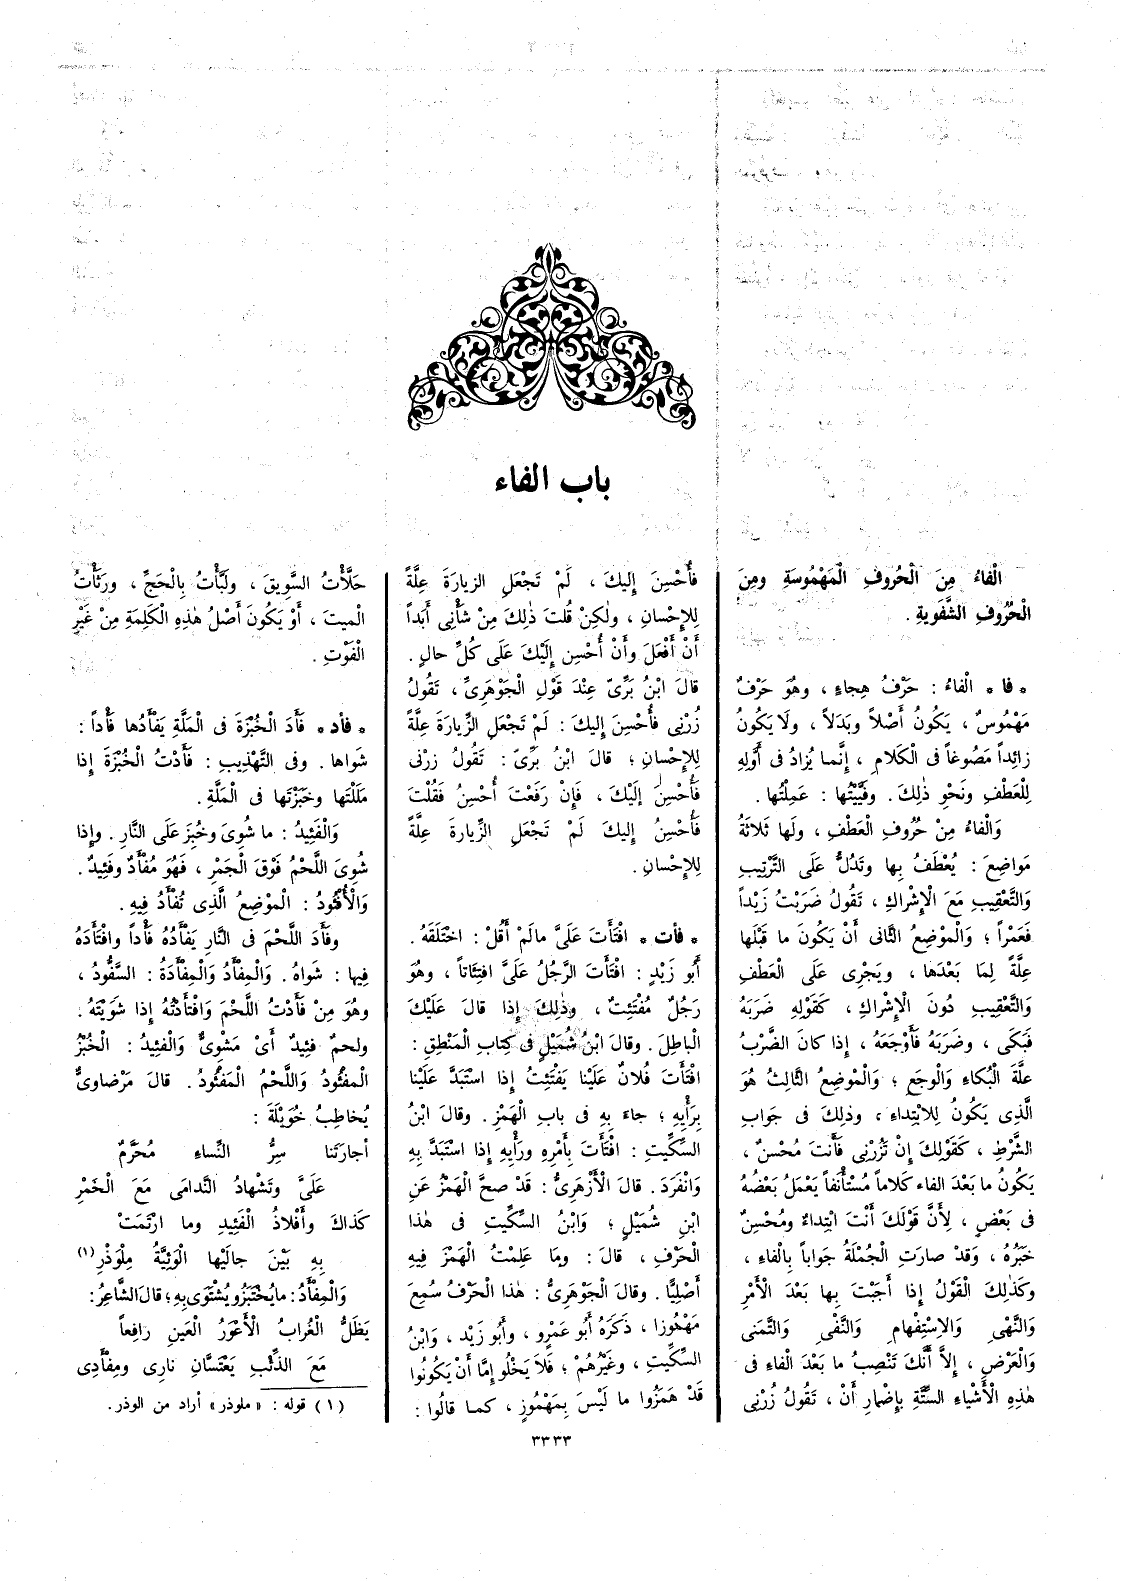 باب الفاء
الْفاءُ مِنَ الْحُروفِ الْمَهْمُوسَةِ ومِنَ
الْحُرُوفِ الشَّفَويةِ .
* فا * الْفاءُ : حَرْفُ هِجاءٍ ، وهُوَ حَرْفٌ
مَهْمُوسٌ ، يَكُونُ أَصْلاً وبَدَلاً ، ولَا يَكُونُ
زائِداً مَصُوغاً فى الْكَلامِ ، إِنَّما يُزادُ فى أَوَّلِهِ
لِلْعَطْفِ ونَحْوِ ذٰلِكَ . وفَيَّيْتُها : عَمِلْتُها .
وَالْفاءُ مِنْ حُرُوفِ الْعَطْفِ ، ولَها ثَلاثَةُ
مَواضِعَ : يُعْطَفُ بِها وتَدُلُّ عَلَى التَّرْتِيبِ
وَالتَّعْقِيبِ مَعَ الْإِشْراكِ ، تَقُولُ ضَرَبْتُ زَيْداً
فَعَمْراً ؛ وَالْموْضِعُ الثَّانى أَنْ يَكُونَ ما قَبْلَها
عِلَّةً لِمَا بَعْدَهَا ، ويَجْرِى عَلَى الْعَطْفِ
وَالتَّعْقِيبِ دُونَ الْإِشْراكِ ، كَقَوْلِهِ ضَرَبَهُ
فَبَكَى ، وضَرَبَهُ فَأَوْجَعَهُ ، إِذا كانَ الضَّرْبُ
عِلَّةَ الْبُكاءِ والْوجَعِ ؛ وَالْموْضِعُ الثَّالِثُ هُوَ
الَّذِى يَكُونُ لِلابْتِداءِ ، وذٰلِكَ فى جَوابِ
الشَّرْطِ ، كَقَوْلِكَ إِنْ تَزُرْنِى فَأَنْتَ مُحْسِنٌ ،
يَكُونُ ما بَعْدَ الفاء كَلاماً مُسْتَأْنَفاً يَعْمَلُ بَعْضُهُ
فى بَعْضٍ ، لِأَنَّ قَوْلَكَ أَنْتَ ابْتِداءٌ ومُحْسِنٌ
خَبَرُهُ ، وَقَدْ صارَتِ الْجُمْلَةُ جَواباً بِالْفاءِ ،
وكَذٰلِكَ الْقَوْلُ إِذا أَجَبْتَ بِها بَعْدَ الْأَمْرِ
وَالنَّهْىِ وَالاِسْتِفْهامِ وَالنَّفْىِ وَالتَّمَنى
وَالْعَرْضِ ، إِلاَّ أَنَّكَ تَنْصِبُ ما بَعْدَ الْفاءِ فى
هٰذِهِ الْأَشْياءِ السِّتَّةِ بِإِضْمارِ أَنْ ، تَقُولُ زُرْنِى
فَأُحْسِنَ إِليكَ ، لَمْ تَجْعَلِ الزيارَةَ عِلَّةً
لِلإِحْسانِ ، ولٰكِنْ قُلتَ ذٰلِكَ مِنْ شَأْنِى أَبَداً
أَنْ أَفْعَلَ وأَنْ أُحْسِن إِلَيْكَ عَلَى كُلِّ حالٍ .
قالَ ابْنُ بَرِّىّ عِنْدَ قَوْلِ الْجَوْهَرِىِّ ، تَقُولُ
زُرْنِى فأُحْسِنَ إِليكَ : لَمْ تَجْعَلِ الزِّيارَةَ عِلَّةً
لِلإِحْسانِ ؛ قالَ ابْنُ بَرِّىّ : تَقُولُ زرْنى
فَأُحْسِنَ إِلَيْكَ ، فَإِنْ رَفَعْتَ أُحْسِنُ فَقُلْتَ
فَأُحْسِنُ إِليكَ لَمْ تَجْعَلِ الزِّيارةَ عِلَّةً
لِلإِحْسانِ .
* فأت * افْتَأَتَ عَلَىَّ مالَمْ أَقُلْ : اخْتَلَقَهُ .
أَبُو زَيْدٍ : افْتَأَتَ الرَّجُلُ عَلَىَّ افتِئاتاً ، وهُوَ
رَجُلٌ مُفْتَئِتٌ ، وذٰلِكَ إِذا قالَ عَلَيْكَ
الْباطِلَ . وقالَ ابْنُ شُمَيْلٍ فى كِتابِ الْمَنْطِقِ :
افْتَأَتَ فُلانٌ عَلَيْنا يَفْتَئِتُ إِذا اسْتَبَدَّ عَلَيْنا
بِرَأْيِهِ ؛ جاءَ بِهِ فى بابِ الْهَمْزِ . وقالَ ابْنُ
السِّكِّيتِ : افْتَأَتَ بِأَمْرِهِ ورَأْيِهِ إِذا اسْتَبَدَّ بِهِ
وَانْفَرَدَ . قالَ الْأَزْهَرِىُّ : قَدْ صحَّ الْهَمْزُ عَنِ
ابْنِ شُمَيْلٍ ؛ وَابْنُ السِّكِّيتِ فى هٰذا
الْحَرْفِ ، قالَ : وما عَلِمْتُ الْهَمْزَ فِيهِ
أَصْلِيًّا . وقالَ الْجَوْهَرِىُّ : هٰذا الْحَرْفُ سُمِعَ
مَهْمُوزا ، ذَكَرَهُ أَبُو عَمْرٍو ، وأَبُو زَيْد ، وَابْنُ
السِّكِّيتِ ، وغَيْرُهُمْ ؛ فَلاَ يَخْلُو إِمَّا أَنْ يَكُونُوا
قَدْ هَمَزُوا ما لَيْسَ بِمَهْمُوزٍ ، كَما قالُوا :
حَلَّأْتُ السَّوِيقَ ، ولَبَّأْتُ بِالْحَجِّ ، ورَثَأْتُ
الْميتَ ، أَوْ يَكُونَ أَصْلُ هٰذِهِ الْكَلِمَةِ مِنْ غَيْرِ
الْفَوْتِ .
* فأد * فَأَدَ الْخُبْزَةَ فى الْمَلَّةِ يَفْأَدُها فَأْداً :
شَواها . وفى التَّهْذِيبِ : فَأَدْتُ الْخُبْزَةَ إِذا
مَلَلْتَها وخَبَزْتَها فى الْمَلَّةِ .
وَالْفَئِيدُ : ما شُوِىَ وخُبِزَ عَلَى النَّارِ . وإِذا
شُوِىَ اللَّحْمُ فَوْقَ الْجَمْرِ ، فَهُوَ مُفْأَدٌ وفَئِيدٌ .
وَالْأُفْئُودُ : الْموْضِعُ الَّذِى تُفْأَدُ فِيهِ .
وفَأَدَ اللَّحْمَ فى النَّارِ يَفْأَدُهُ فَأْداً وافْتَأَدَهُ
فِيها : شَواهُ . وَالْمِفْأَدُ وَالْمِفْأَدَةُ : السَّفُّودُ ،
وهُوَ مِنْ فَأَدْتُ اللَّحْمَ وَافْتَأَدْتُهُ إِذا شَوَيْتَهُ .
ولحمٌ فَئِيدٌ أَىْ مَشْوِىٌّ وَالْفَئِيدُ : الْخُبْزُ
الْمفْئُودُ وَاللَّحْمُ الْمَفْئُودُ . قالَ مَرْضاوِىٌّ
يُخاطِبُ خُوَيْلَةَ :
أَجارَتَنا سِرُّ النِّساءِ مُحَرَّمٌ
عَلَىَّ وتَشْهادُ النَّدامَى مَعَ الْخَمْرِ
كَذاكَ وأَفْلاذُ الْفَئِيدِ وما ارْتَمَتْ
بِهِ بَيْنَ جالَيْها الْوَئِيَّةُ مِلْوَذْرِ (١)
وَالْمِفْأَدُ : ما يُخْتَبَزُ ويُشْتَوَى بِهِ ؛ قالَ الشَّاعِرُ :
يَظَلُّ الْغُرابُ الْأَعْوَرُ الْعَينِ رافِعاً
مَعَ الذِّئْبِ يَعْتَسَّانِ نارِى ومِفْأَدِى
(١) قوله : «ملوذر» أراد من الوذر .
٣٣٣٣